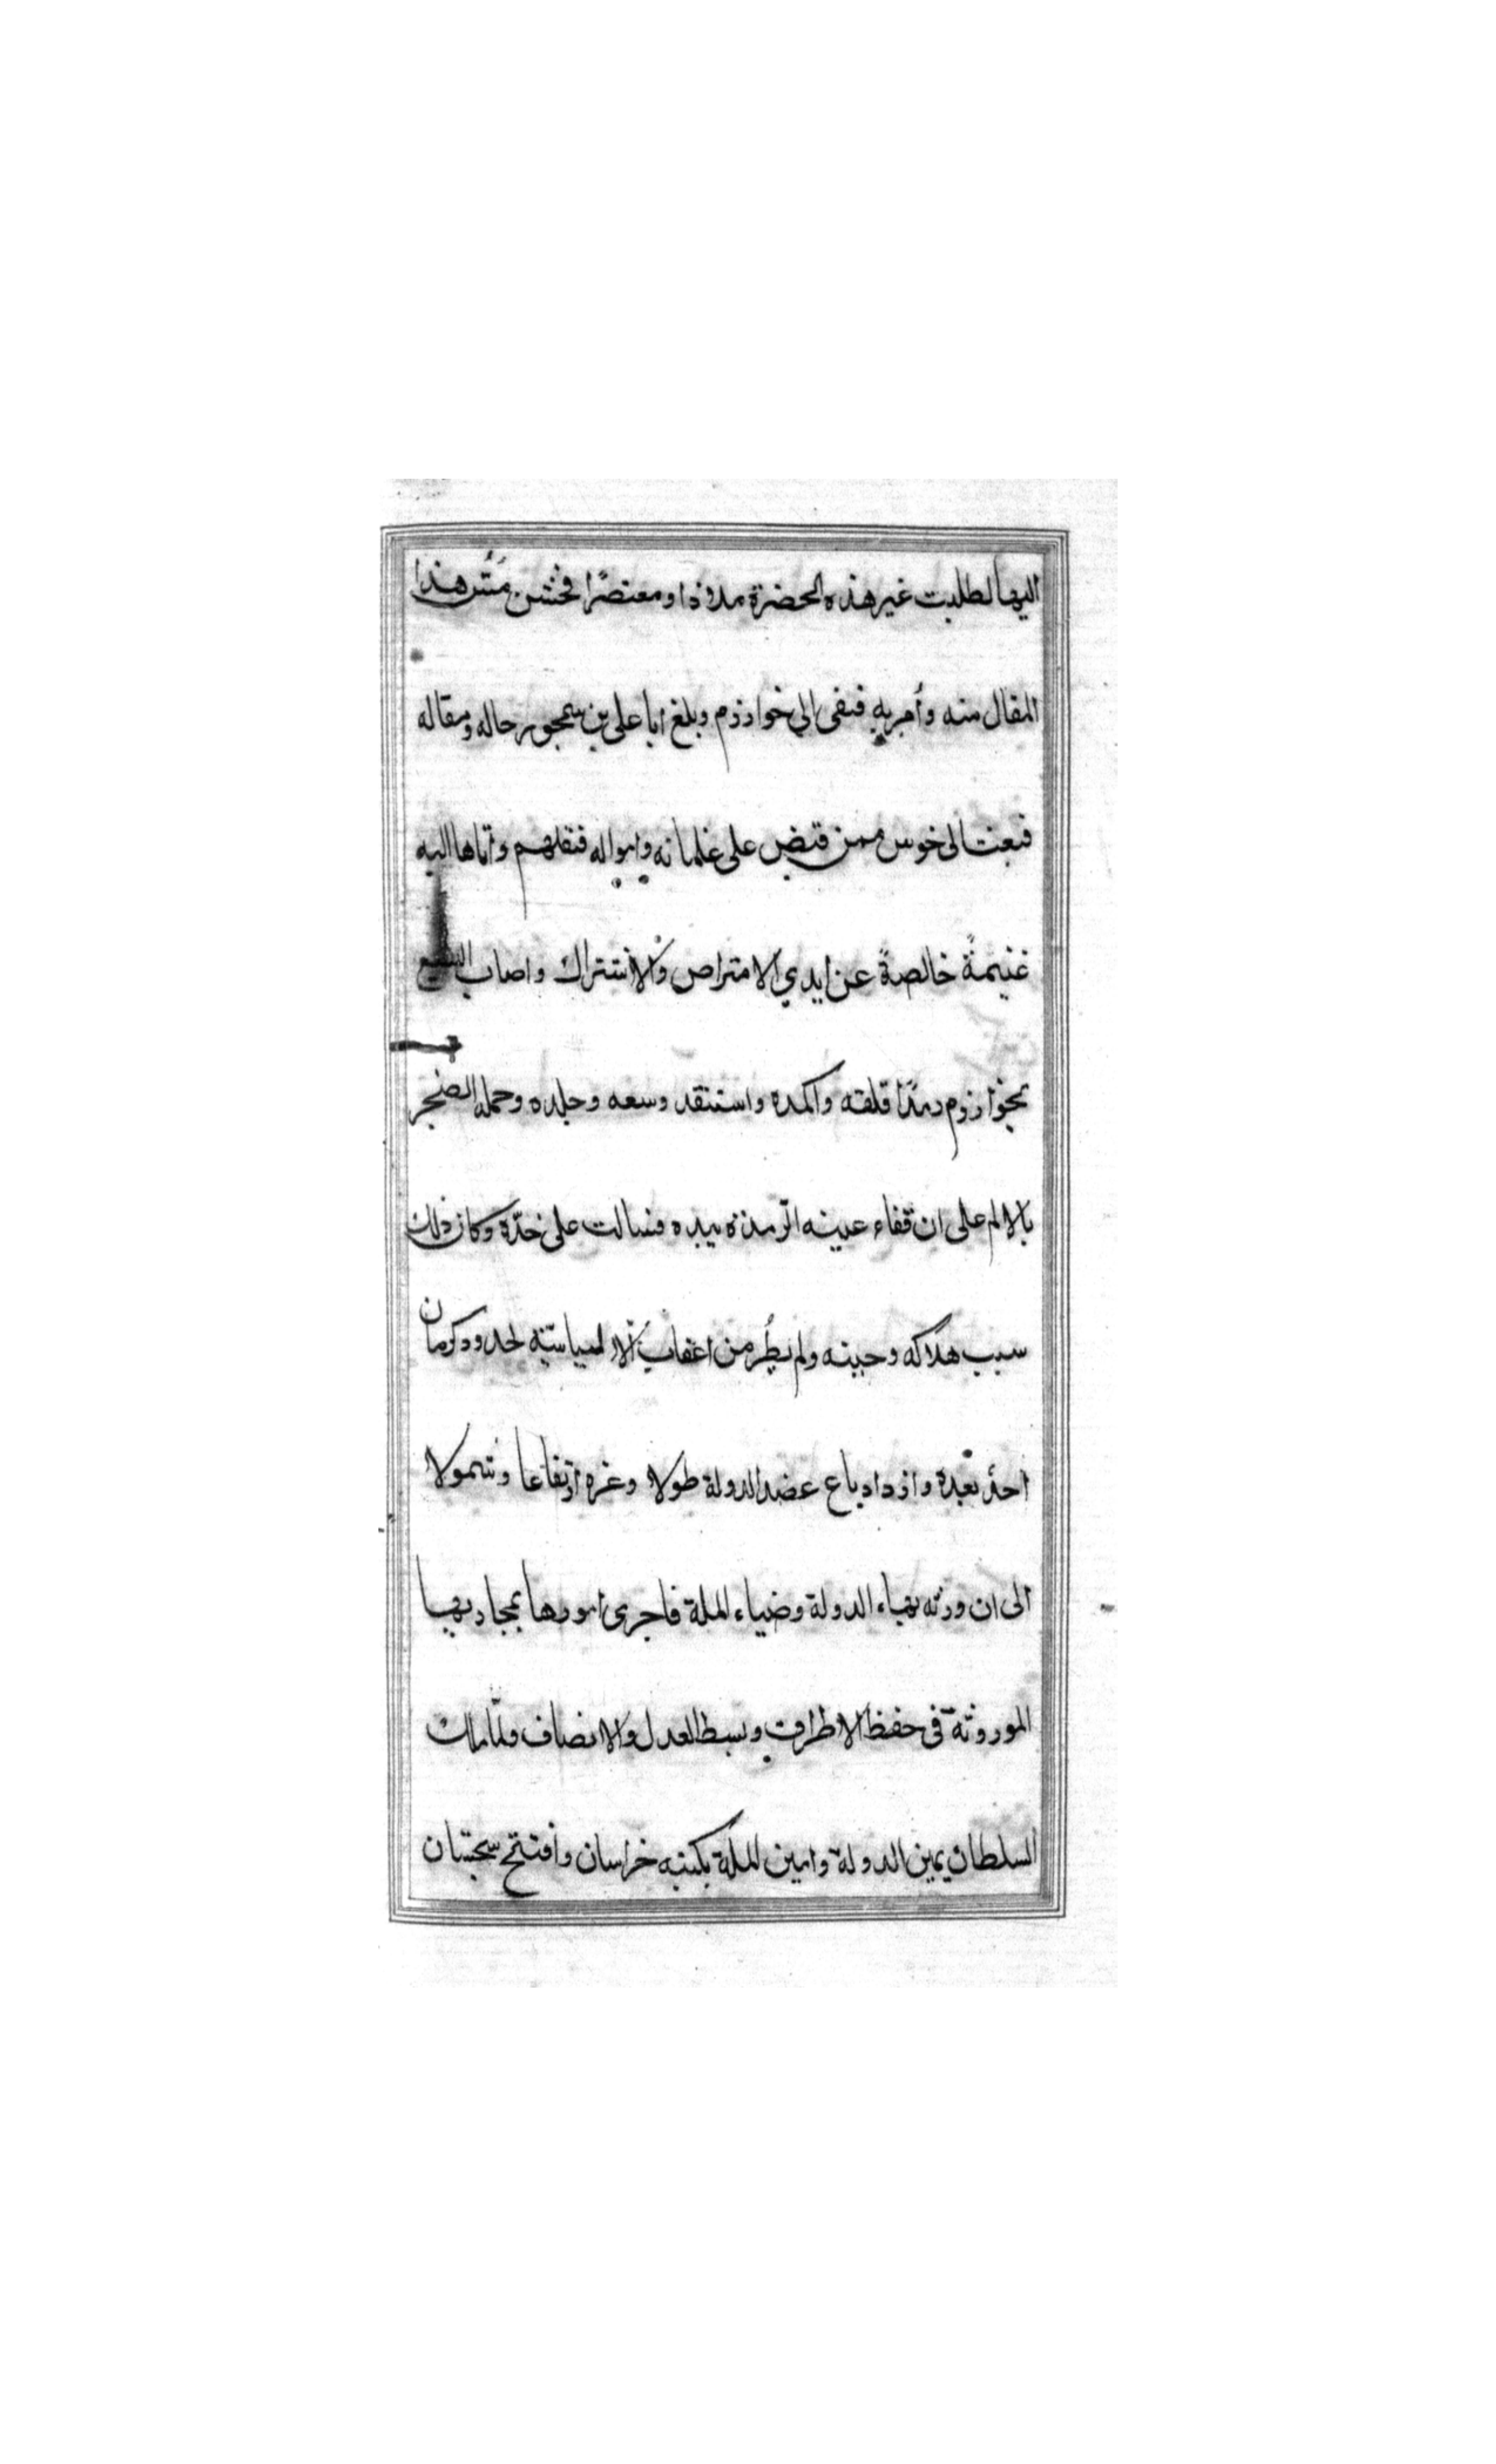 اليها لطلبت غير هذه الحضرة ملاذا ومعتصرًا فخشن مُسّ هذا
المقال منه وأمر به فنفى الى خوارزم وبلغ ابا على بن سمجور حاله ومقاله
فبعث الى خوس ممن قبض على غلمانه وامواله فنقلهم واتاها اليه
غنيمةً خالصةً عن ايدي الامتراص والاشتراك واصاب اليسع
بخوارزم رمدًا قلقه واكمده واستنفد وسعه وجلده وحمله الضجر
بالالم على ان قفاء عينه الرمدة بيده فسالت على خدّه وكان ذلك
سبب هلاكه وحينه ولم يطُر من اعقاب آلا لسياسّيّه لحدود كرمان
احدٌ بعده وازداد باع عضد الدولة طولا وعزه ارتفاعا وشمولا
الى ان ورثه بهاء الدولة وضياء الملة فاجرى امورها بمجاريها
الموروثة فى حفظ الاطراف وبسط العدل والانصاف ولمّا ملك
السلطان يمين الدولة وامين الملّة بكبته خراسان وافتتح سجستان